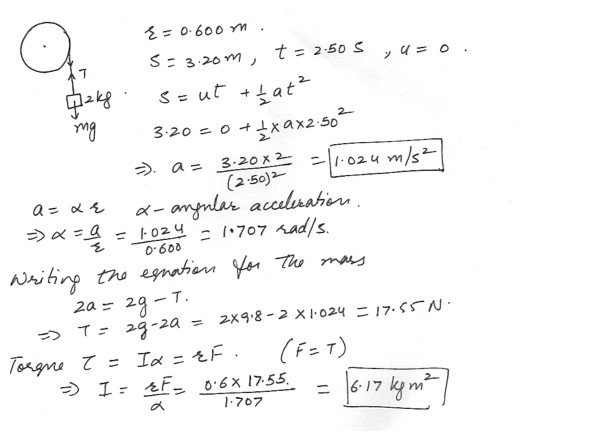 r = 0.600 m .
S = 3.20 m , t = 2.50 S , u = 0 .
T
2kg .
mg
S = ut + 1/2 at²
3.20 = 0 + 1/2 × a × 2.50²
⇒. a = 3.20 × 2 / (2.50)² = 1.024 m/s²
a = α r α - angular acceleration .
⇒ α = a/r = 1.024 / 0.600 = 1.707 rad/s.
Writing the equation for the mass
2a = 2g - T .
⇒ T = 2g - 2a = 2×9.8 - 2 × 1.024 = 17.55 N .
Torque τ = Iα = rF . (F = T)
⇒ I = rF / α = 0.6 × 17.55. / 1.707 = 6.17 kg m²